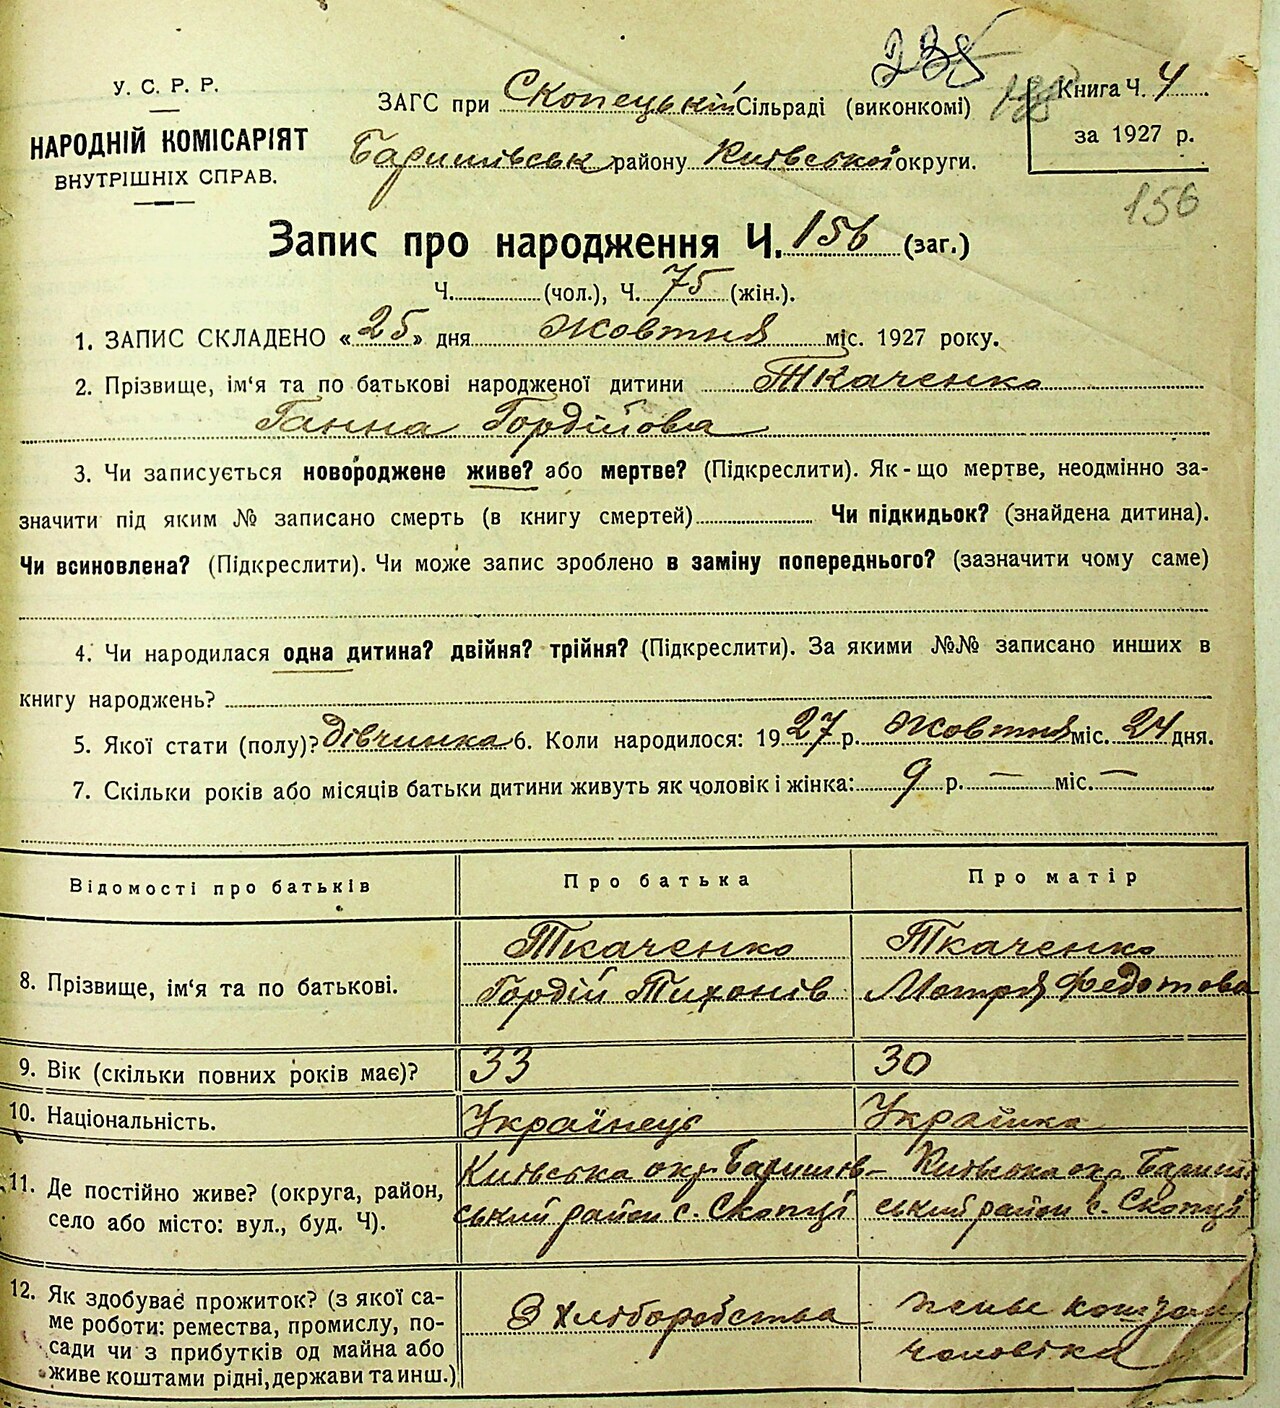 235
У. С. Р. Р.
НАРОДНІЙ КОМІСАРІЯТ
ВНУТРІШНІХ СПРАВ.
ЗАГС при Скопецькій Сільраді (виконкомі)
Баришівськ району Київської округи.
Книга Ч. 4
за 1927 р.
156
Запис про народження Ч. 156 (заг.)
Ч. (чол.), Ч. 75 (жін.).
1. ЗАПИС СКЛАДЕНО «25» дня Жовтня міс. 1927 року.
2. Прізвище, ім'я та по батькові народженої дитини Ткаченко
Ганна Гордійова
3. Чи записується новороджене живе? або мертве? (Підкреслити). Як-що мертве, неодмінно за-
значити під яким № записано смерть (в книгу смертей) Чи підкидьок? (знайдена дитина).
Чи всиновлена? (Підкреслити). Чи може запис зроблено в заміну попереднього? (зазначити чому саме)
4. Чи народилася одна дитина? двійня? трійня? (Підкреслити). За якими №№ записано инших в
книгу народжень?
5. Якої стати (полу)? дівчинка 6. Коли народилося: 1927 р. Жовтня міс. 24 дня.
7. Скільки років або місяців батьки дитини живуть як чоловік і жінка: 9 р. — міс. —
Відомості про батьків Про батька Про матір
8. Прізвище, ім'я та по батькові. Ткаченко Гордій Тихонів Ткаченко Мотря Федотова
9. Вік (скільки повних років має)? 33 30
10. Національність. Українець Украінка
11. Де постійно живе? (округа, район, село або місто: вул., буд. Ч). Київська окр. Баришів-ський район с. Скопці Київська окр. Баришівський район с. Скопці
12. Як здобуває прожиток? (з якої са-
ме роботи: ремества, промислу, по-
сади чи з прибутків од майна або
живе коштами рідні, держави та инш.) З хліборобства живе коштам чоловіка